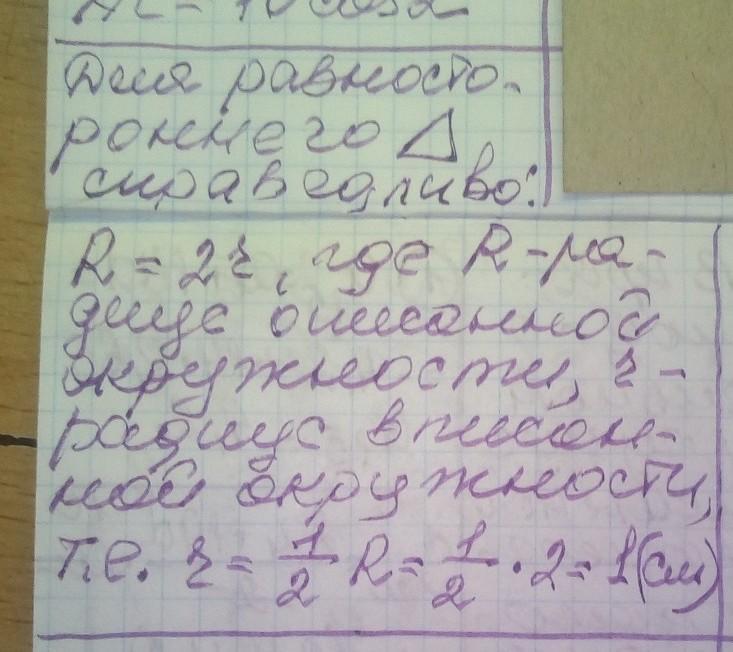 Для равносто-
роннего Δ
справедливо:
R = 2r, где R - ра-
диус описанной
окружности, r -
радиус вписан-
ной окружности,
т.е. r = 1/2 R = 1/2 · 2 = 1 (см)